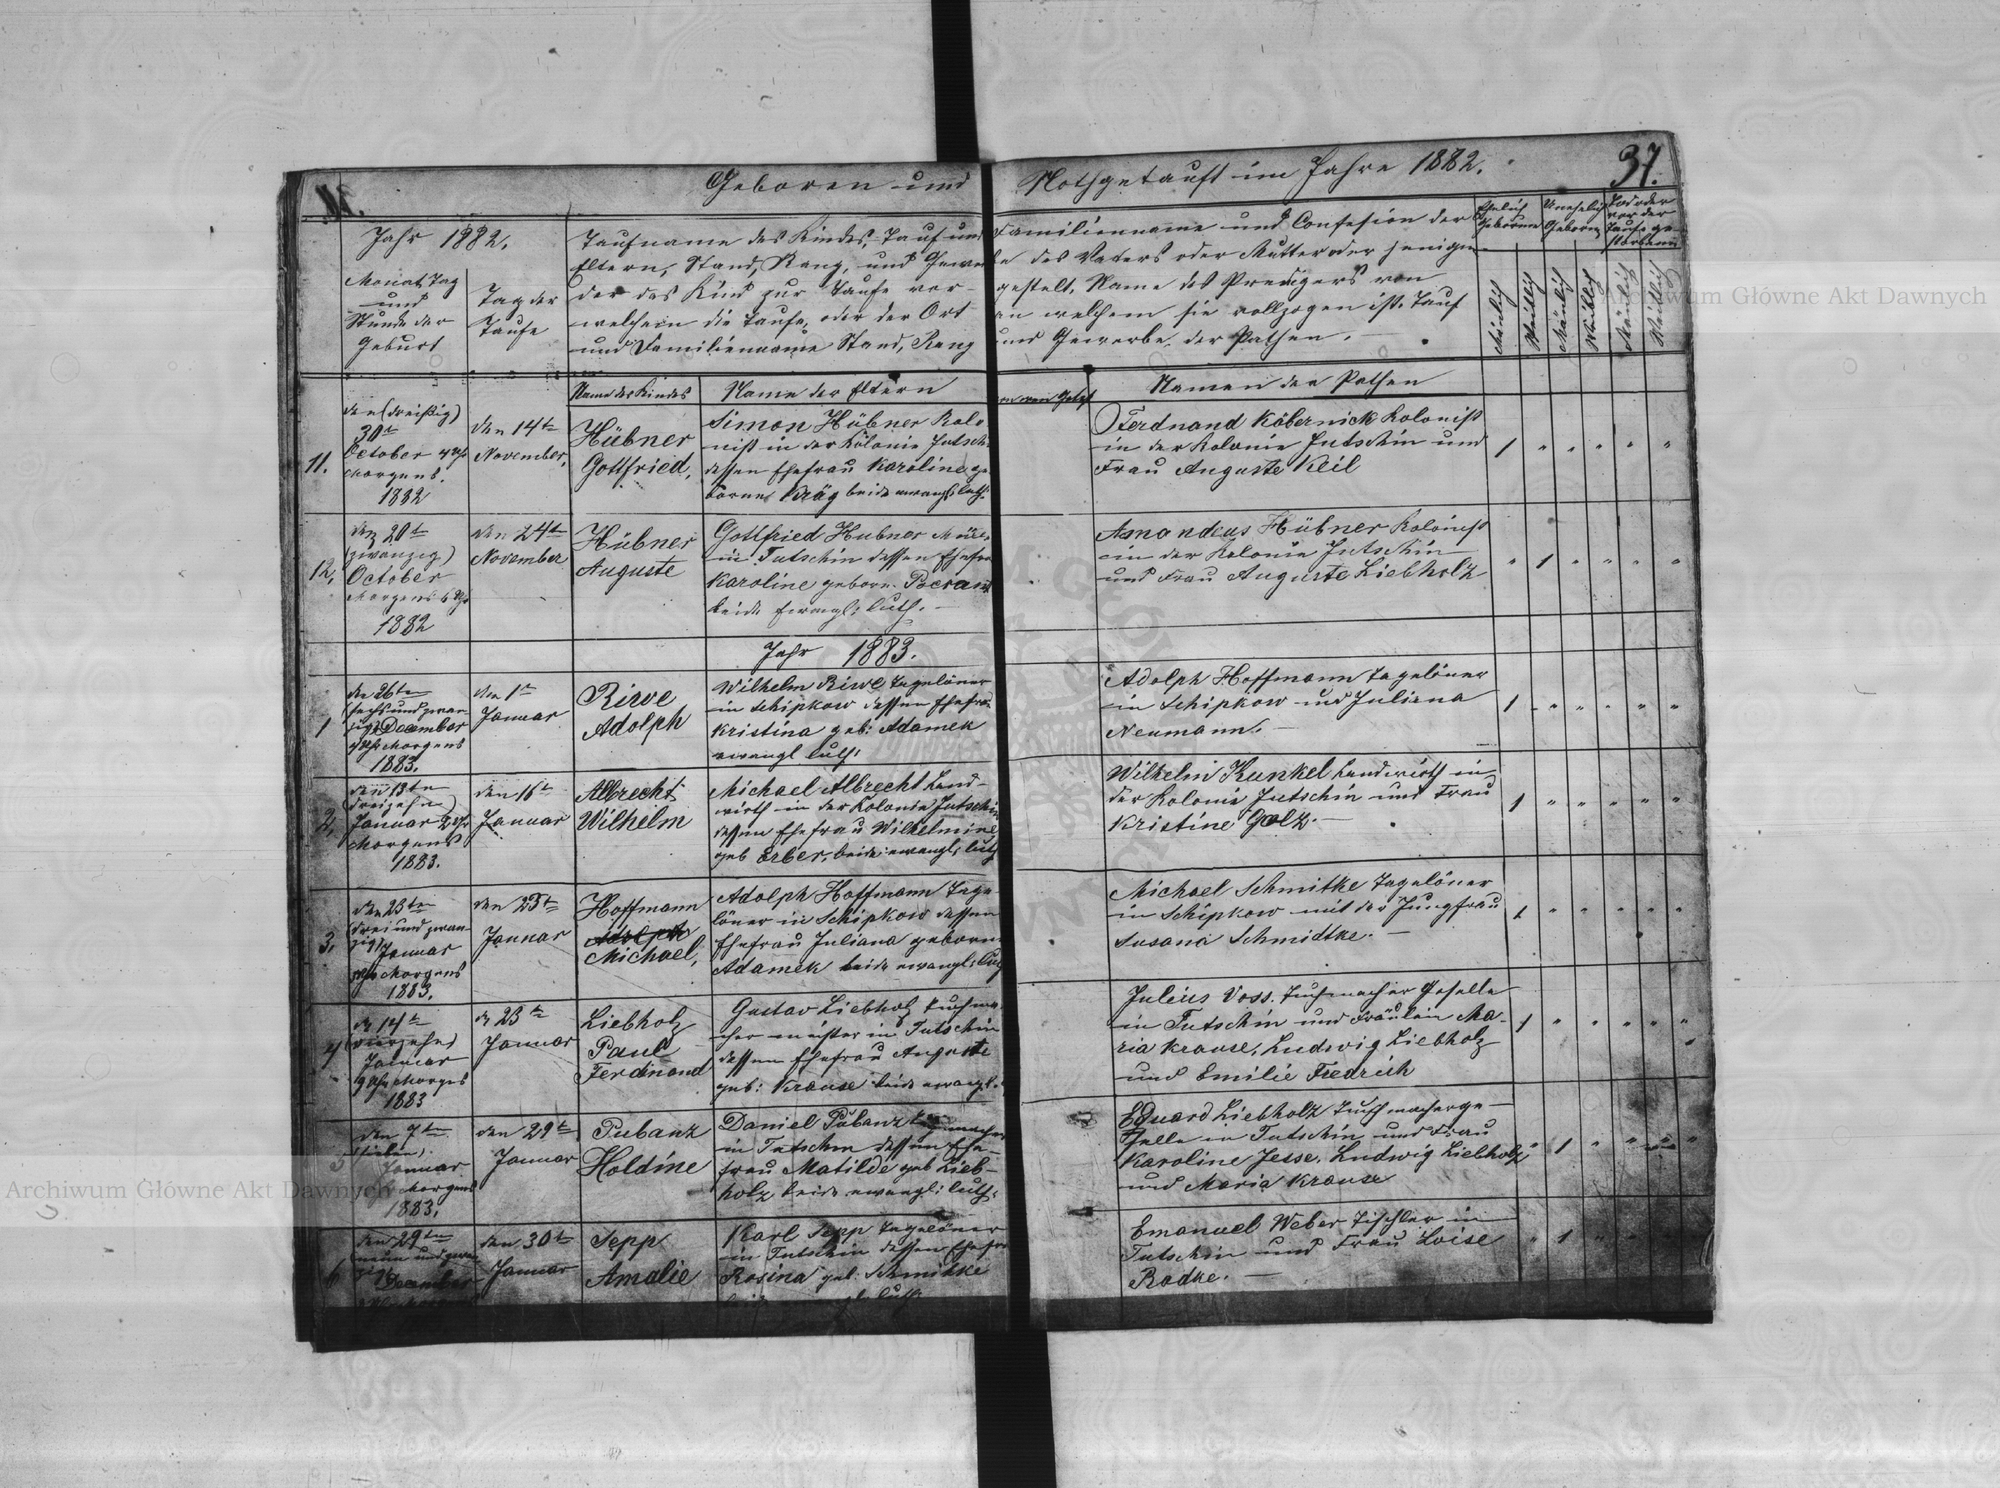 Geboren und Nothgetauft im Jahre 1882.
37.
Jahr 1882.
Monat, Tag
und
Stunde der
Geburt
Tag der
Taufe
Taufname des Kindes, Tauf und Familienname und Confesion der
Eltern, Stand, Rang, und Gewerbe des Vaters oder Mutter oder jenigen
der das Kind zur Taufe vorgestelt, Name des Predigers von
welchem die Taufe, oder der Ort an welchem sie vollzogen ist. Tauf
und Familienname Stand, Rang und Gewerbe der Pathen.
Ehelich
Geboren
Unehelich
Geboren
Tod oder
vor der
Taufe ge-
storben
Mänlich
Weiblich
Mänlich
Weiblich
Mänlich
Weiblich
Name des Kindes
Name der Eltern
Namen der Pathen
11.
den (dreißig)
30t
October 4 Uhr
Morgens.
1882
den 14te
November,
Hübner
Gottfried,
Simon Hübner Kolo
nist in der Kolonie Jutsch
dessen Ehefrau Karoline ge
borne Kräg beide ewangl: luth.
Ferdnand Köbernick Kolonist
in der Kolonie Jutschin und
Frau Auguste Keil
1
12.
den 20t
(zwanzig)
October
Morgens 6 Uhr
1882
den 24te
November
Hübner
Auguste
Gottfried Hubner
in Tutschin dessen Ehefrau
Karoline geborn.
beide ewangl: luth. —
Amandeus Hübner Kolonist
in der Kolonie Jutschin
und Frau Auguste Liebholz
1
Jahr 1883.
1
den 26ten
sechs und zwan-
zigs December
Uhr Morgens
1883.
den 1te
Januar
Riwe
Adolph
Wilhelm Riwe Tagelöner
in Schipkow dessen Ehefrau
Kristina geb: Adamek
ewangl luth:
Adolph Hoffmann Tagelöner
in Schipkow und Juliana
Neumann. —
1
2.
den 13ten
(dreizehn)
Januar 2 Uhr
Morgens
1883.
den 16te
Januar
Albrecht
Wilhelm
Michael Albrecht Land-
wirth in der Kolonie Jutschin
dessen Ehefrau Wilhelmine
geb Erber, beide ewangl: luth
Wilhelm Kunkel Landwirth in
der Kolonie Jutschin und Frau
Kristine Golz. —
1
3.
den 23ten
(drei und zwan-
zig) Januar
Uhr Morgens
1883.
den 23te
Januar
Hoffmann
Adolph
Michael,
Adolph Hoffmann Tage-
löner in Schipkow dessen
Ehefrau Juliana geborn
Adamek beide ewangl: luth
Michael Schmitke Tagelöner
in Schipkow mit der Jungfrau
Susana Schmidtke. —
1
4
de 14te
(vierzehn)
Januar
9 Uhr Morges
1883
de 23te
Januar
Liebholz
Paul
Ferdinand
Gustav Liebholz Tuchma
cher meister in Tutschin
dessen Ehefrau Auguste
geb: Krause beide ewangl.
Julius Voss. Tuchmacher Geselle
in Tutschin und Fräulein Ma-
ria Krause, Ludwig Liebholz
und Emilie Fredrich
1
5
den 7ten
sieben)
Januar
Morgens
1883.
den 29te
Januar
Pubanz
Holdine
Daniel Pubanz Tuchmacher
in Tutschin dessen Ehe-
frau Matilde geb Lieb-
holz beide ewangl: luth:
Eduard Liebholz Tuchmacherge-
selle in Tutschin und Frau
Karoline Jesse, Ludwig Liebholz
und Maria Krause
1
6
den 29ten
neun und zwan
zig December
den 30te
Januar
Sepp
Amalie
Karl Sepp Tagelöner
in Tutschin dessen Ehefrau
Rosina geb: Schmitke
Emanuel Weber Tischler in
Tutschin und Frau Loise
Radke. —
1
Archiwum Główne Akt Dawnych
Archiwum Główne Akt Dawnych